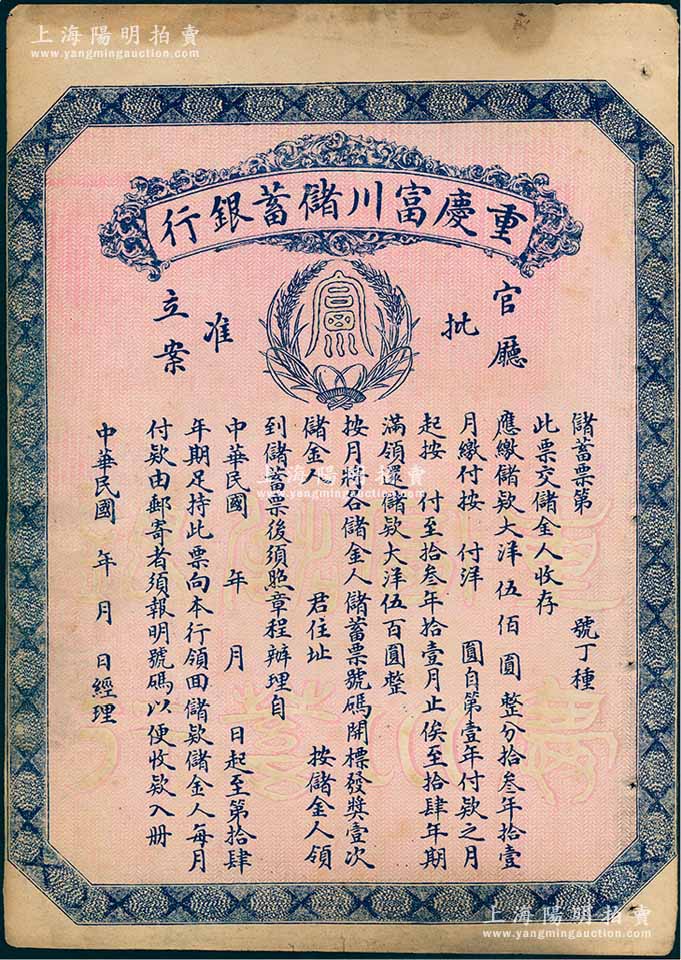 上海陽明拍賣
www.yangmingauction.com
重慶富川儲蓄銀行
官廳
批
准
立案
儲蓄票第 號丁種
此票交儲金人收存
應繳儲欵大洋伍佰圓整分拾叁年拾壹
月繳付按 付洋 圓自第壹年付欵之月
起按 付至拾叁年拾壹月止俟至拾肆年期
滿領還儲欵大洋伍百圓整
按月將各儲金人儲蓄票號碼開標發獎壹次
儲金人 君住址 按儲金人領
到儲蓄票後須照章程辦理自
中華民國 年 月 日起至第拾肆
年期足持此票向本行領回儲欵儲金人每月
付欵由郵寄者須報明號碼以便收欵入册
中華民國 年 月 日經理
上海陽明拍賣
www.yangmingauction.com
上海陽明拍賣
www.yangmingauction.com